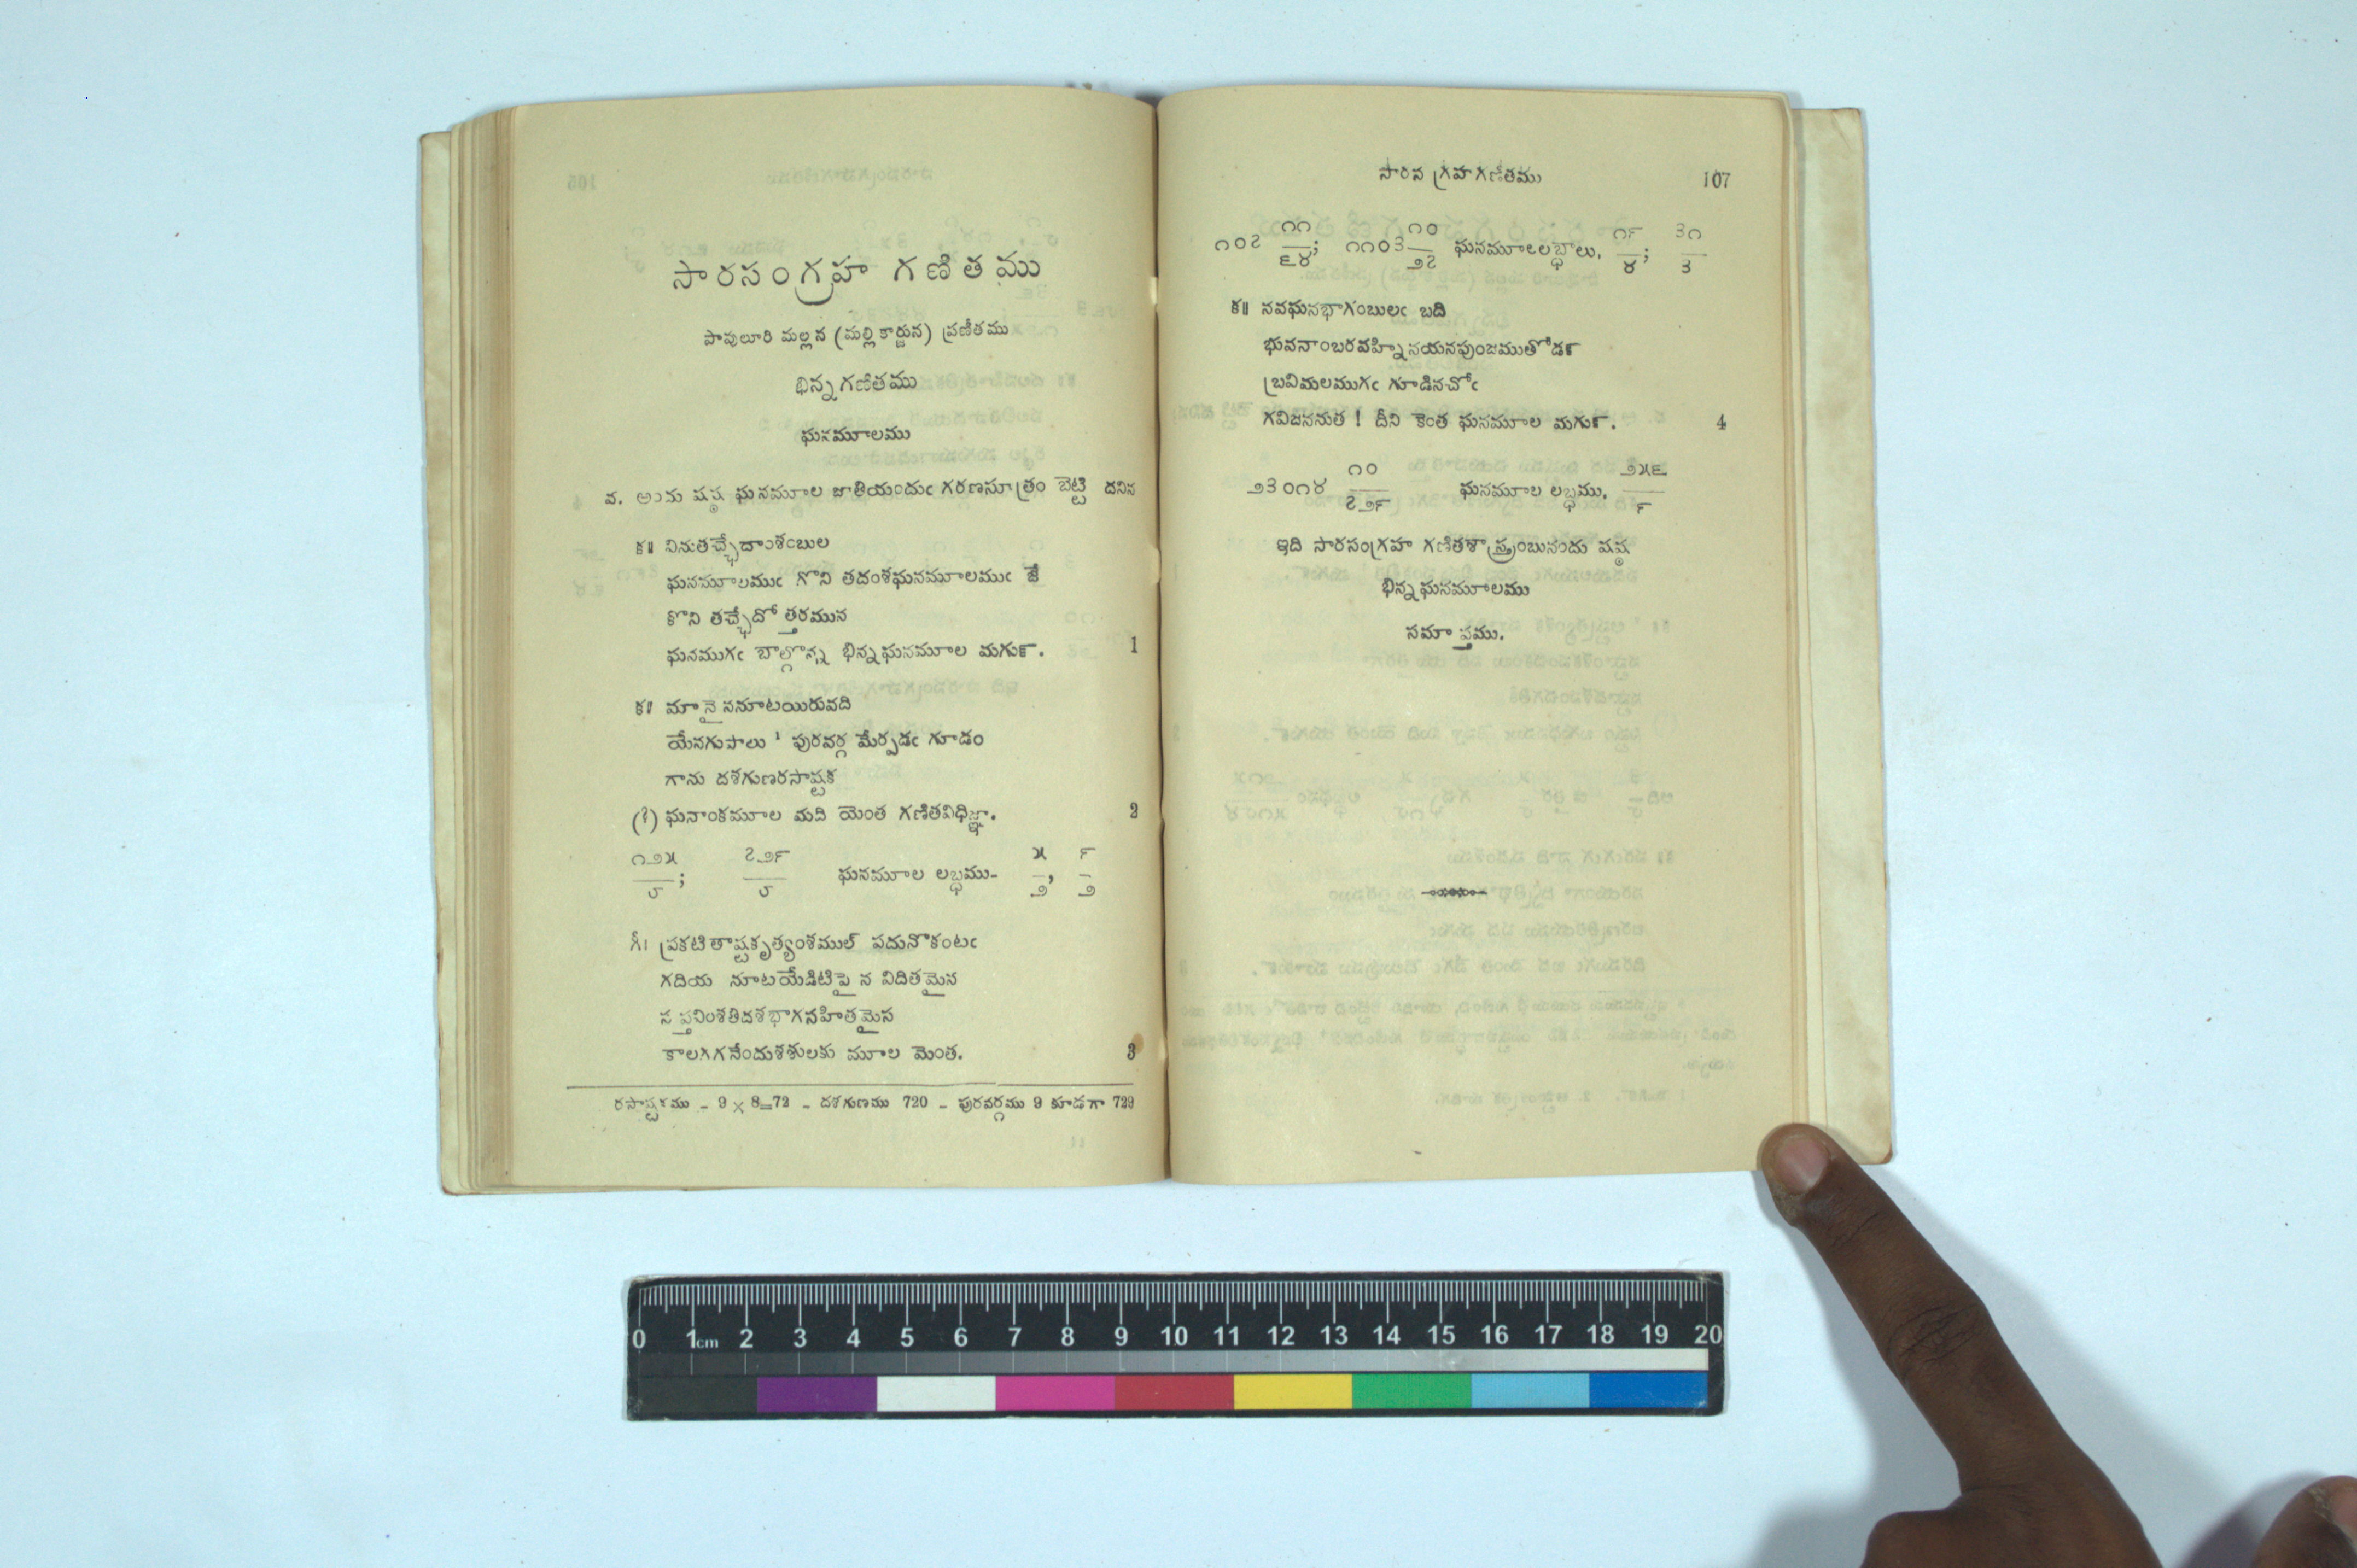 సారసంగ్రహ గణితము
పావులూరి మల్లన (మల్లికార్జున) ప్రణీతము
భిన్న గణితము
ఘనమూలము
వ. అను షష్ఠ ఘనమూల జాతియందుఁ గరణసూత్రం బెట్టి దనిన
క॥ వినుతచ్ఛేదాంశంబుల
ఘనమూలముఁ గొని తదంశఘనమూలముఁ జే
కొని తచ్ఛేదోత్తరమున
ఘనముగఁ బాల్గొన్న భిన్నఘనమూల మగుఁ. 1
క॥ మానై ననూటయిరువది
యేనగుపాలు ¹ పురవర్గ మేర్పడఁ గూడం
గాను దశగుణరసాష్టక
(?) ఘనాంకమూల మది యెంత గణితవిధిజ్ఞా. 2
౧౨౫/౮; ౭౨౯/౮ ఘనమూల లబ్ధము- ౫/౨, ౯/౨
గీ। ప్రకటితాష్టకృత్యంశముల్ పదునొకంటఁ
గదియ నూటయేడిటిపై న విదితమైన
సప్తవింశతిదశభాగసహితమైన
కాలగగనేందుశశులకు మూల మెంత. 3
రసాష్టకము - 9 × 8=72 - దశగుణము 720 - పురవర్గము 9 కూడగా 729
సారస గ్రహగణితము 107
౧౦౭ ౧౧/౬౪; ౧౧౦౩ ౧౦/౨౭ ఘనమూలలబ్ధాలు. ౧౯/౪; ౩౧/౩
క॥ నవఘనభాగంబులఁ బది
భువనాంబరవహ్నినయనపుంజముతోడఁ
బ్రవిమలముగఁ గూడినచోఁ
గవిజననుత ! దీని కెంత ఘనమూల మగుఁ. 4
౨౩౦౧౪ ౧౦/౭౨౯ ఘనమూల లబ్ధము. ౨౫౬/౯
ఇది సారసంగ్రహ గణితశాస్త్రంబునందు షష్ఠ
భిన్న ఘనమూలము
సమాప్తము.
0 1cm 2 3 4 5 6 7 8 9 10 11 12 13 14 15 16 17 18 19 20